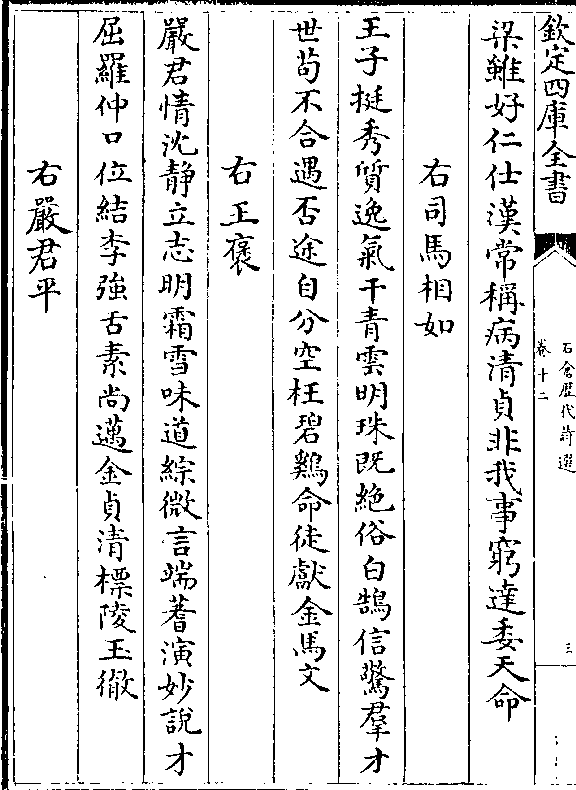 欽定四庫全書
石倉歷代詩選
卷十二
三
梁雖好仁仕漢常稱病清貞非我事窮達委天命
右司馬相如
王子挺秀質逸氣干青雲明珠既絶俗白鵠信驚羣才
世苟不合遇否途自分空枉碧鷄命徒獻金馬文
右王褒
嚴君情沈静立志明霜雪味道綜微言端蓍演妙說才
屈羅仲口位結李強舌素尚邁金貞清標陵玉徹
右嚴君平